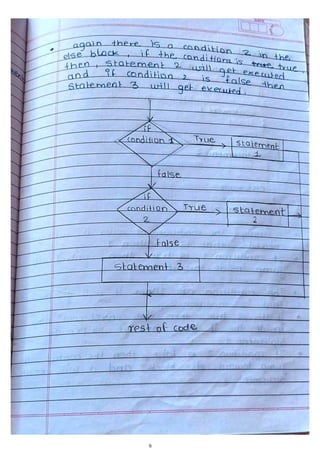 again there is a condition 2 in the
else block, if the condition is true true,
then, statement 2 will get executed
and if condition 2 is false then
statement 3 will get executed.
if
condition 1
True
statement
1
false
if
condition
2
True
statement
2
false
statement 3
rest of code
9